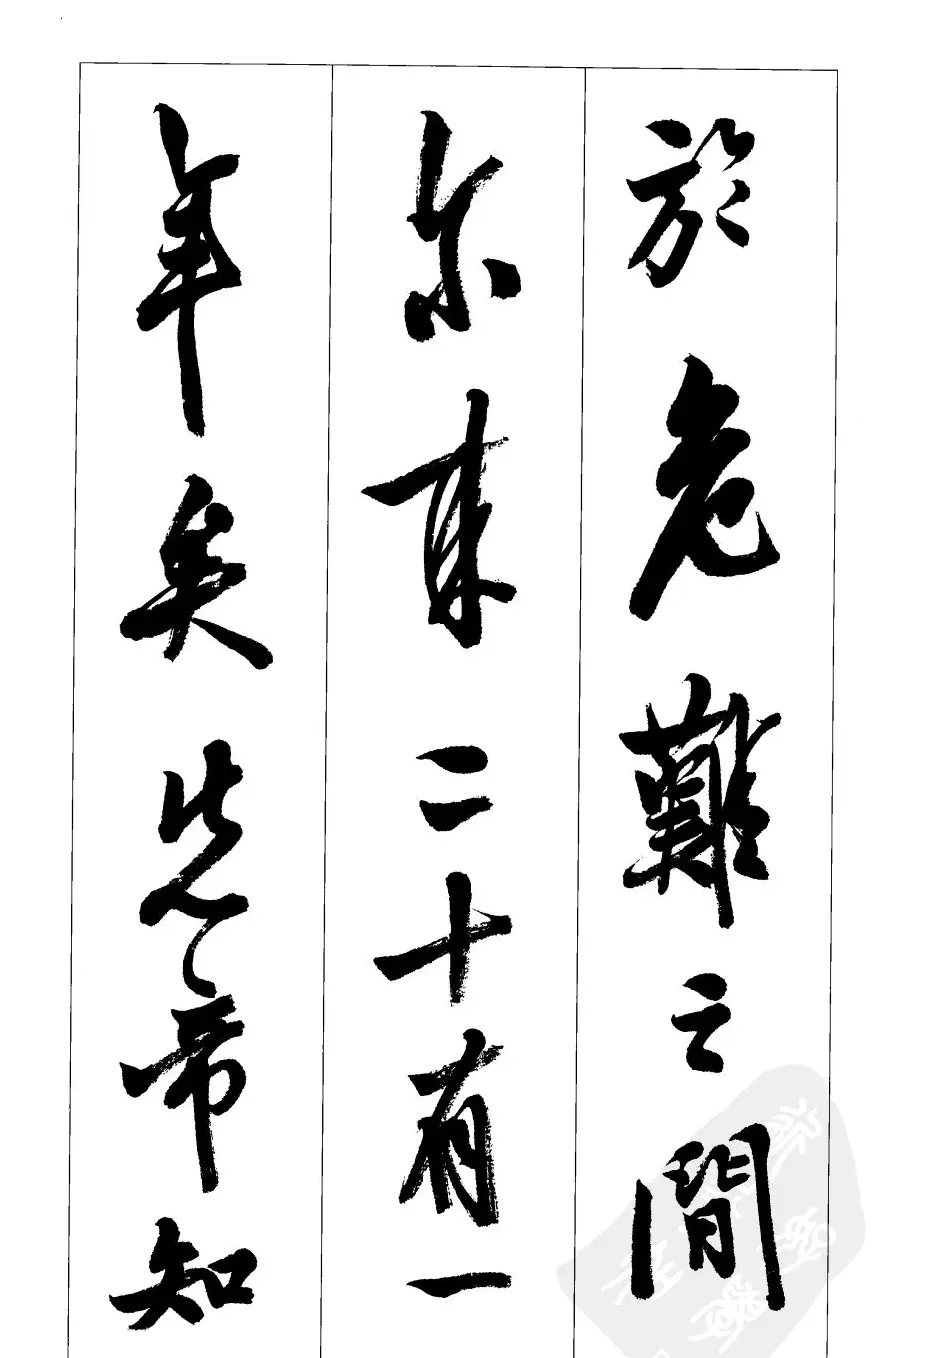 於危難之間
尔来二十有一
年矣先帝知